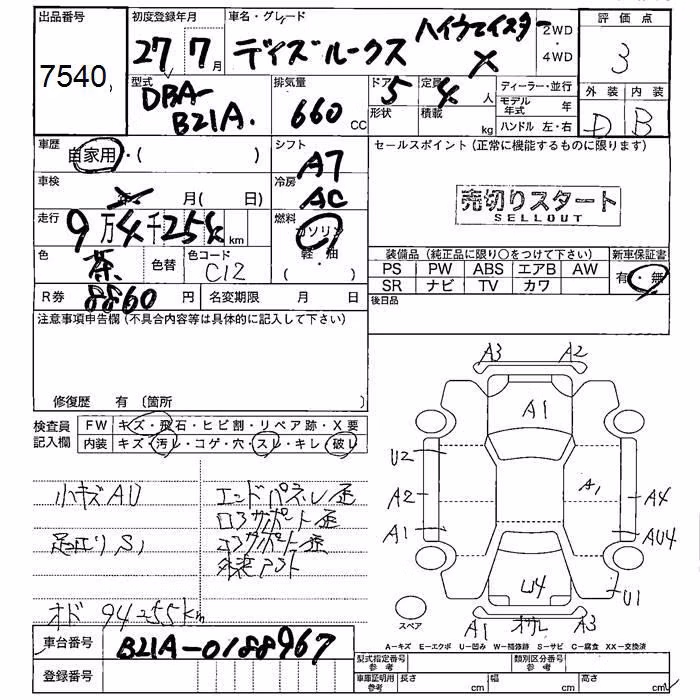 出品番号
7540
初度登録年月
27年7月
車名・グレード
デイズルークス ハイウェイスター X
2WD
・
4WD
評価点
3
外装 内装
D B
型式
DBA-
B21A.
排気量
660 CC
ドア
5
形状
定員
4人
積載
kg
ディーラー・並行
モデル年式 年
ハンドル 左・右
車歴
自家用・( )
シフト
A7
セールスポイント(正常に機能するものに限ります)
売切りスタート
SELLOUT
車検
年 月( 日)
冷房
AC
走行
9万4千25 km
燃料
ガソリン
(軽・油)
色
茶
色替
色コード
C12
装備品(純正品に限り○をつけて下さい)
新車保証書
PS PW ABS エアB AW
有・無
SR ナビ TV カワ
R券
8860円
名変期限 月 日
後日品
注意事項申告欄(不具合内容等は具体的に記入して下さい)
修復歴 有 (箇所 )
検査員
記入欄
FW キズ・飛石・ヒビ割・リペア跡・X要
内装 キズ・汚レ・コゲ・穴・スレ・キレ・破レ
小キズAU
エンドパネル歪
ロアサポート歪
足廻りS1
コアサポート歪
オド 94255km
A3 A2
A1
U2
A2
A1
A1
A4
AU4
U4
U1
スペア
A1
A3
A-キズ E-エクボ U-凹み W-補修跡 S-サビ C-腐食 XX-交換済
車台番号
B21A-0188967
登録番号
型式指定番号
参考
類別区分番号
参考
車庫証明用
参考
長さ cm
幅 cm
高さ cm